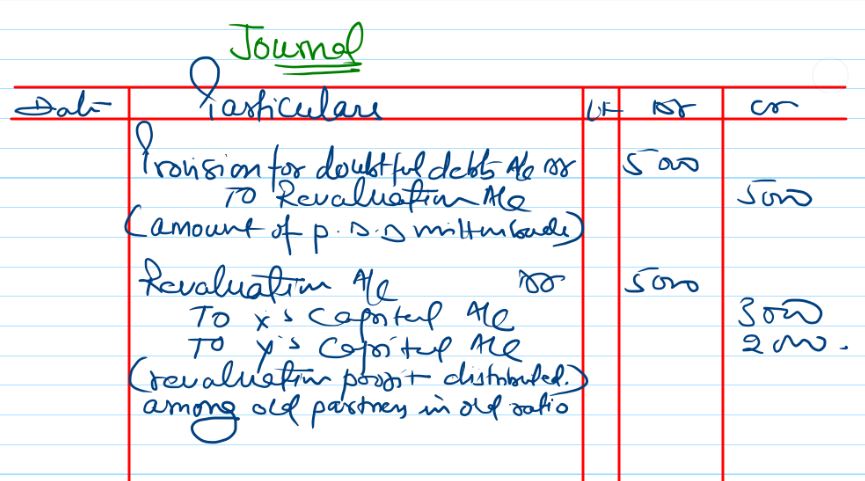 Journal
Date Particulars LF Dr Cr
Provision for doubtful debts A/c Dr 5000
To Revaluation A/c 5000
(amount of P.D.D written back)
Revaluation A/c Dr 5000
To X's Capital A/c 3000
To Y's Capital A/c 2000.
(revaluation profit distributed.)
among old partners in old ratio